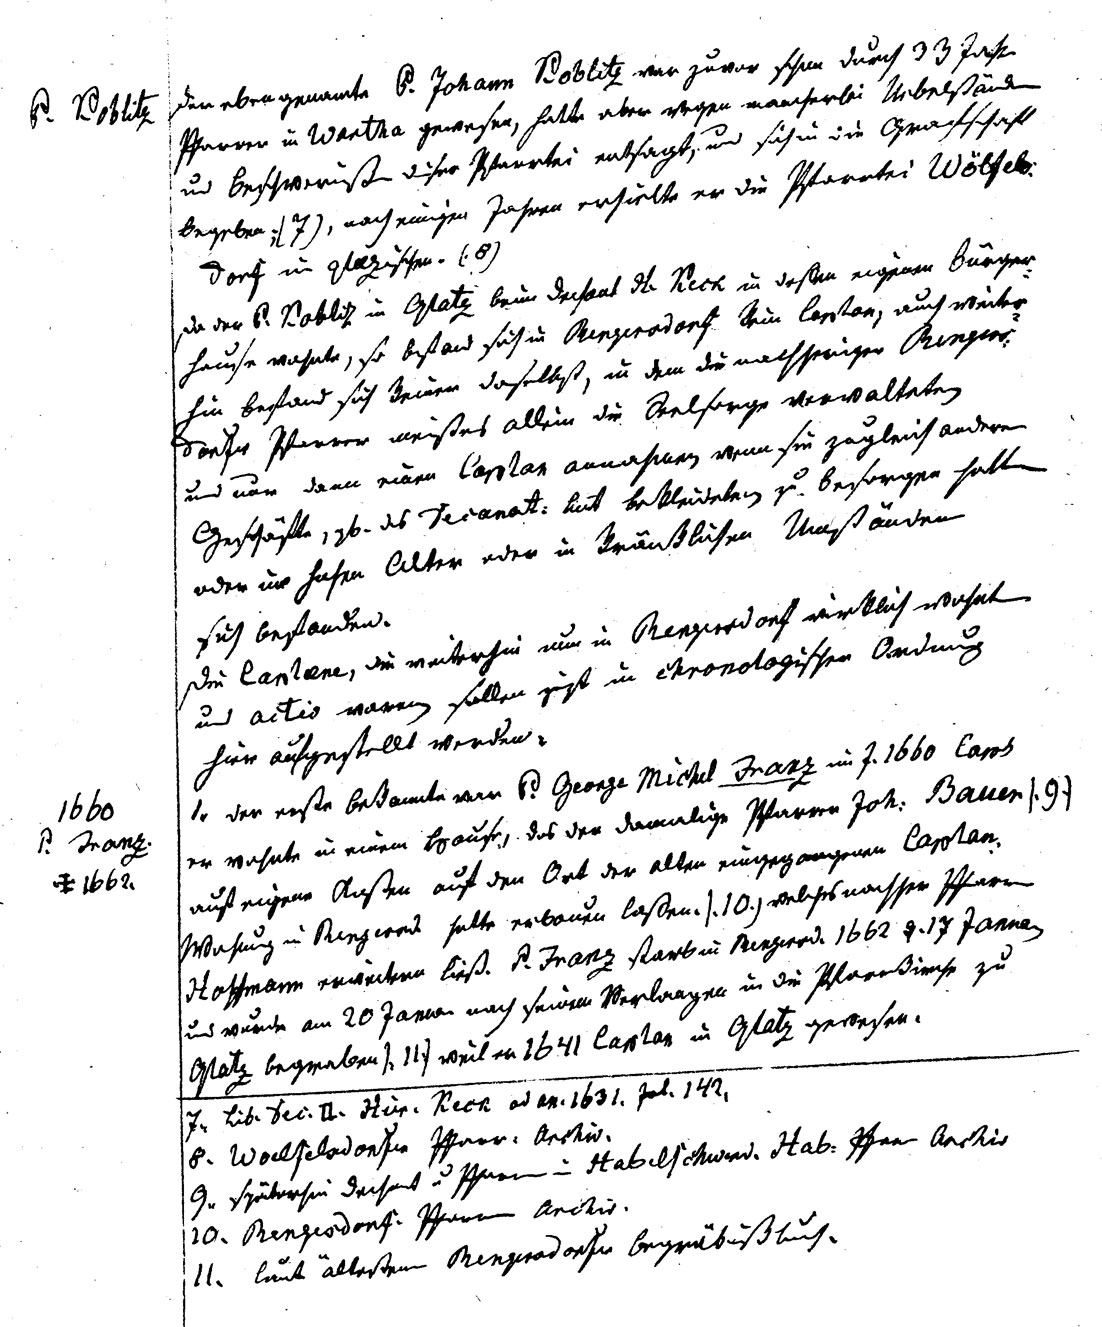 P. Koblitz
der eben genannte P. Johann Koblitz war zuvor schon durch 33 Jahr
Pfarrer in Wartha gewesen, hatte aber wegen mancherlei Uebelstände
und Beschwerniße dieser Pfarrtei entsagt, und sich in die Grafschaft
begeben; (7), nach einigen Jahren erhielte er die Pfarrtei Wölfels-
dorf im glazischen. (8)
da der P. Koblitz in Glatz beim Dechant H. Keck in deßen eigenen Bürger-
hause wohnte, so befand sich in Rengersdorf kein Caplan, auch weiter-
hin befand sich keiner daselbst, in dem die nachherigen Rengers-
dorfer Pfarrer meistes allein die Seelsorge verwalteten
und nur dann einen Caplan annahmen wenn sie zugleich andere
Geschäfte, zb. das Decanat: Amt bekleideten zu besorgen hatten
oder im hohen Alter oder in kränklichen Umständen
sich befanden.
Die Caplane, die weiterhin nun in Rengersdorf wirklich wohnten
und activ waren sollen jezt in chronologischer Ordnung
hier aufgestellt werden.
1660
P. Franz.
1662.
1. der erste bekannte war P. George Michel Franz im J. 1660 Capl
er wohnte in einem Hause, das der damalige Pfarrer Joh: Bauer (.9.)
auf eigene Kosten auf den Ort der alten eingegangenen Caplan.
Wohnung in Rengersd. hatte erbauen laßen. (.10.) welches nachher Pfarrer
Hoffmann erweitern ließ. P. Franz starb in Rengersd. 1662 d. 17 Januar
und wurde am 20 Januar nach seinem Verlangen in die Pfarrkirche zu
Glatz begraben (.11.) weil er 1641 Caplan in Glatz gewesen.
7. Lib. Dec. II. Hier. Keck ad an. 1631. fol. 142.
8. Woelfelsdorfer Pfarr. Archiv.
9. späterhin Dechant u Pfarrer in Habelschwerd. Hab: Pfarr Archiv
10. Rengersdorf. Pfarr Archiv.
11. laut ältestem Rengersdorfer Begräbnißbuch.